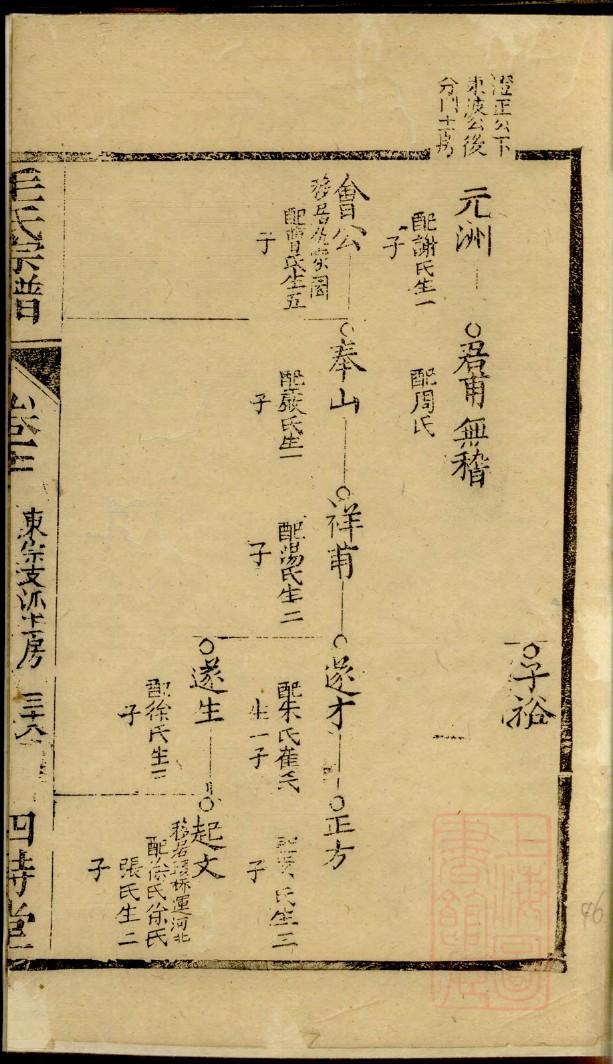 澄正公下
東波公後
分門十二房
子裕
元洲
配謝氏生一
子
君甫無稽
配周氏
會公
配曹氏生五
子
奉山
配嚴氏生一
子
祥甫
配湯氏生二
子
遂才
配朱氏崔氏
生一子
正方
氏生三
子
遂生
配徐氏生二
子
起文
運河北
配徐氏徐氏
張氏生二
子
氏宗譜
東宗支派十二房
三十八